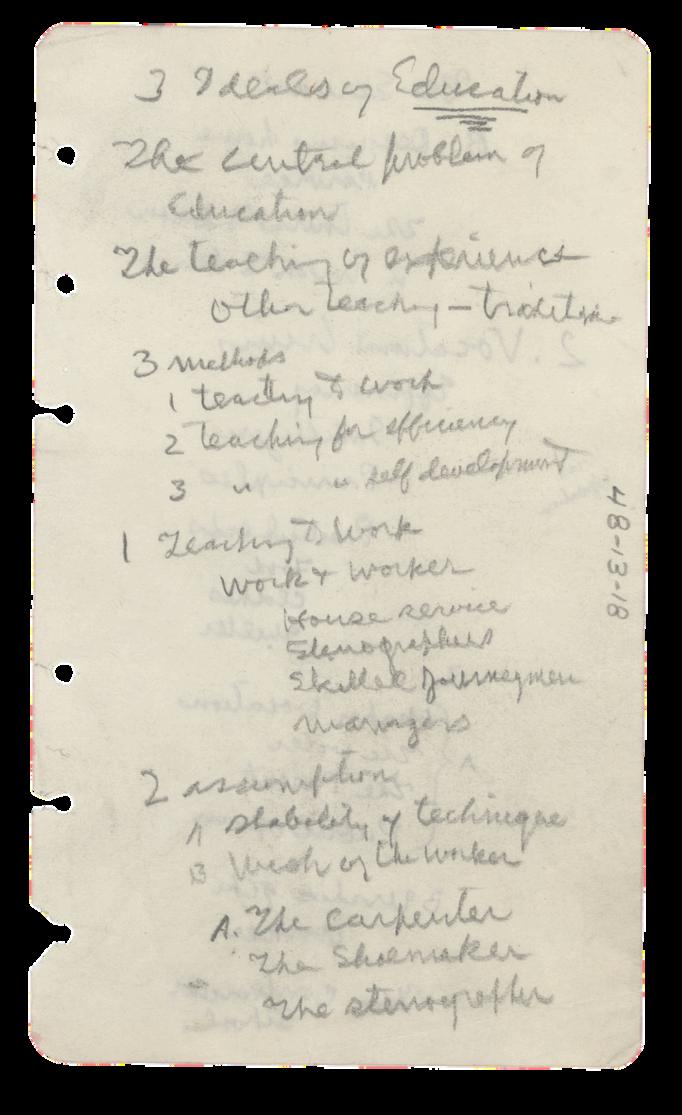 3 Ideals of Education
The central problem of
Education
The teaching of experience
Other teaching — tradition
3 methods
1 teaching to work
2 teaching for efficiency
3 " " self development
1 Teaching to Work
Work & worker
House service
Stenographers
Skilled Journeymen
Managers
2 assumption
A Stability of technique
B Wish of the worker
A. The Carpenter
The Shoemaker
The stenographer
48-13-18
2. Vocational